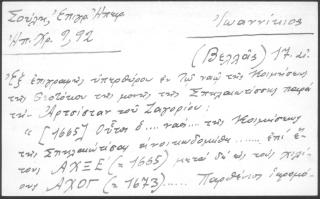 Σούλης, Ἐπιγρ. Ἠπείρ.
Ἠπ. Χρ. 9, 92
Ἰωαννίκιος
(Βελλᾶς) 17. αἰ.
Ἐξ ἐπιγραφῆς ὑπερθύρου ἐν τῷ ναῷ τῆς Κοιμήσεως
τῆς Θεοτόκου τῆς μονῆς τῆς Σπηλαιωτίσσης παρὰ
τὴν Ἀρτσίσταν τοῦ Ζαγορίου:
"[1665] Οὗτος ὁ .... ναὸς .... τῆς Κοιμήσεως
τῆς Σπηλαιωτίσας ἀνοικωδομήθη ....... ἐπὶ ἔ-
τους ΑΧΞΕ´ (= 1665) μετὰ δὲ
τους ΑΧΟΓ´ (= 1673) ...... Παρθενίου ἱερομο-